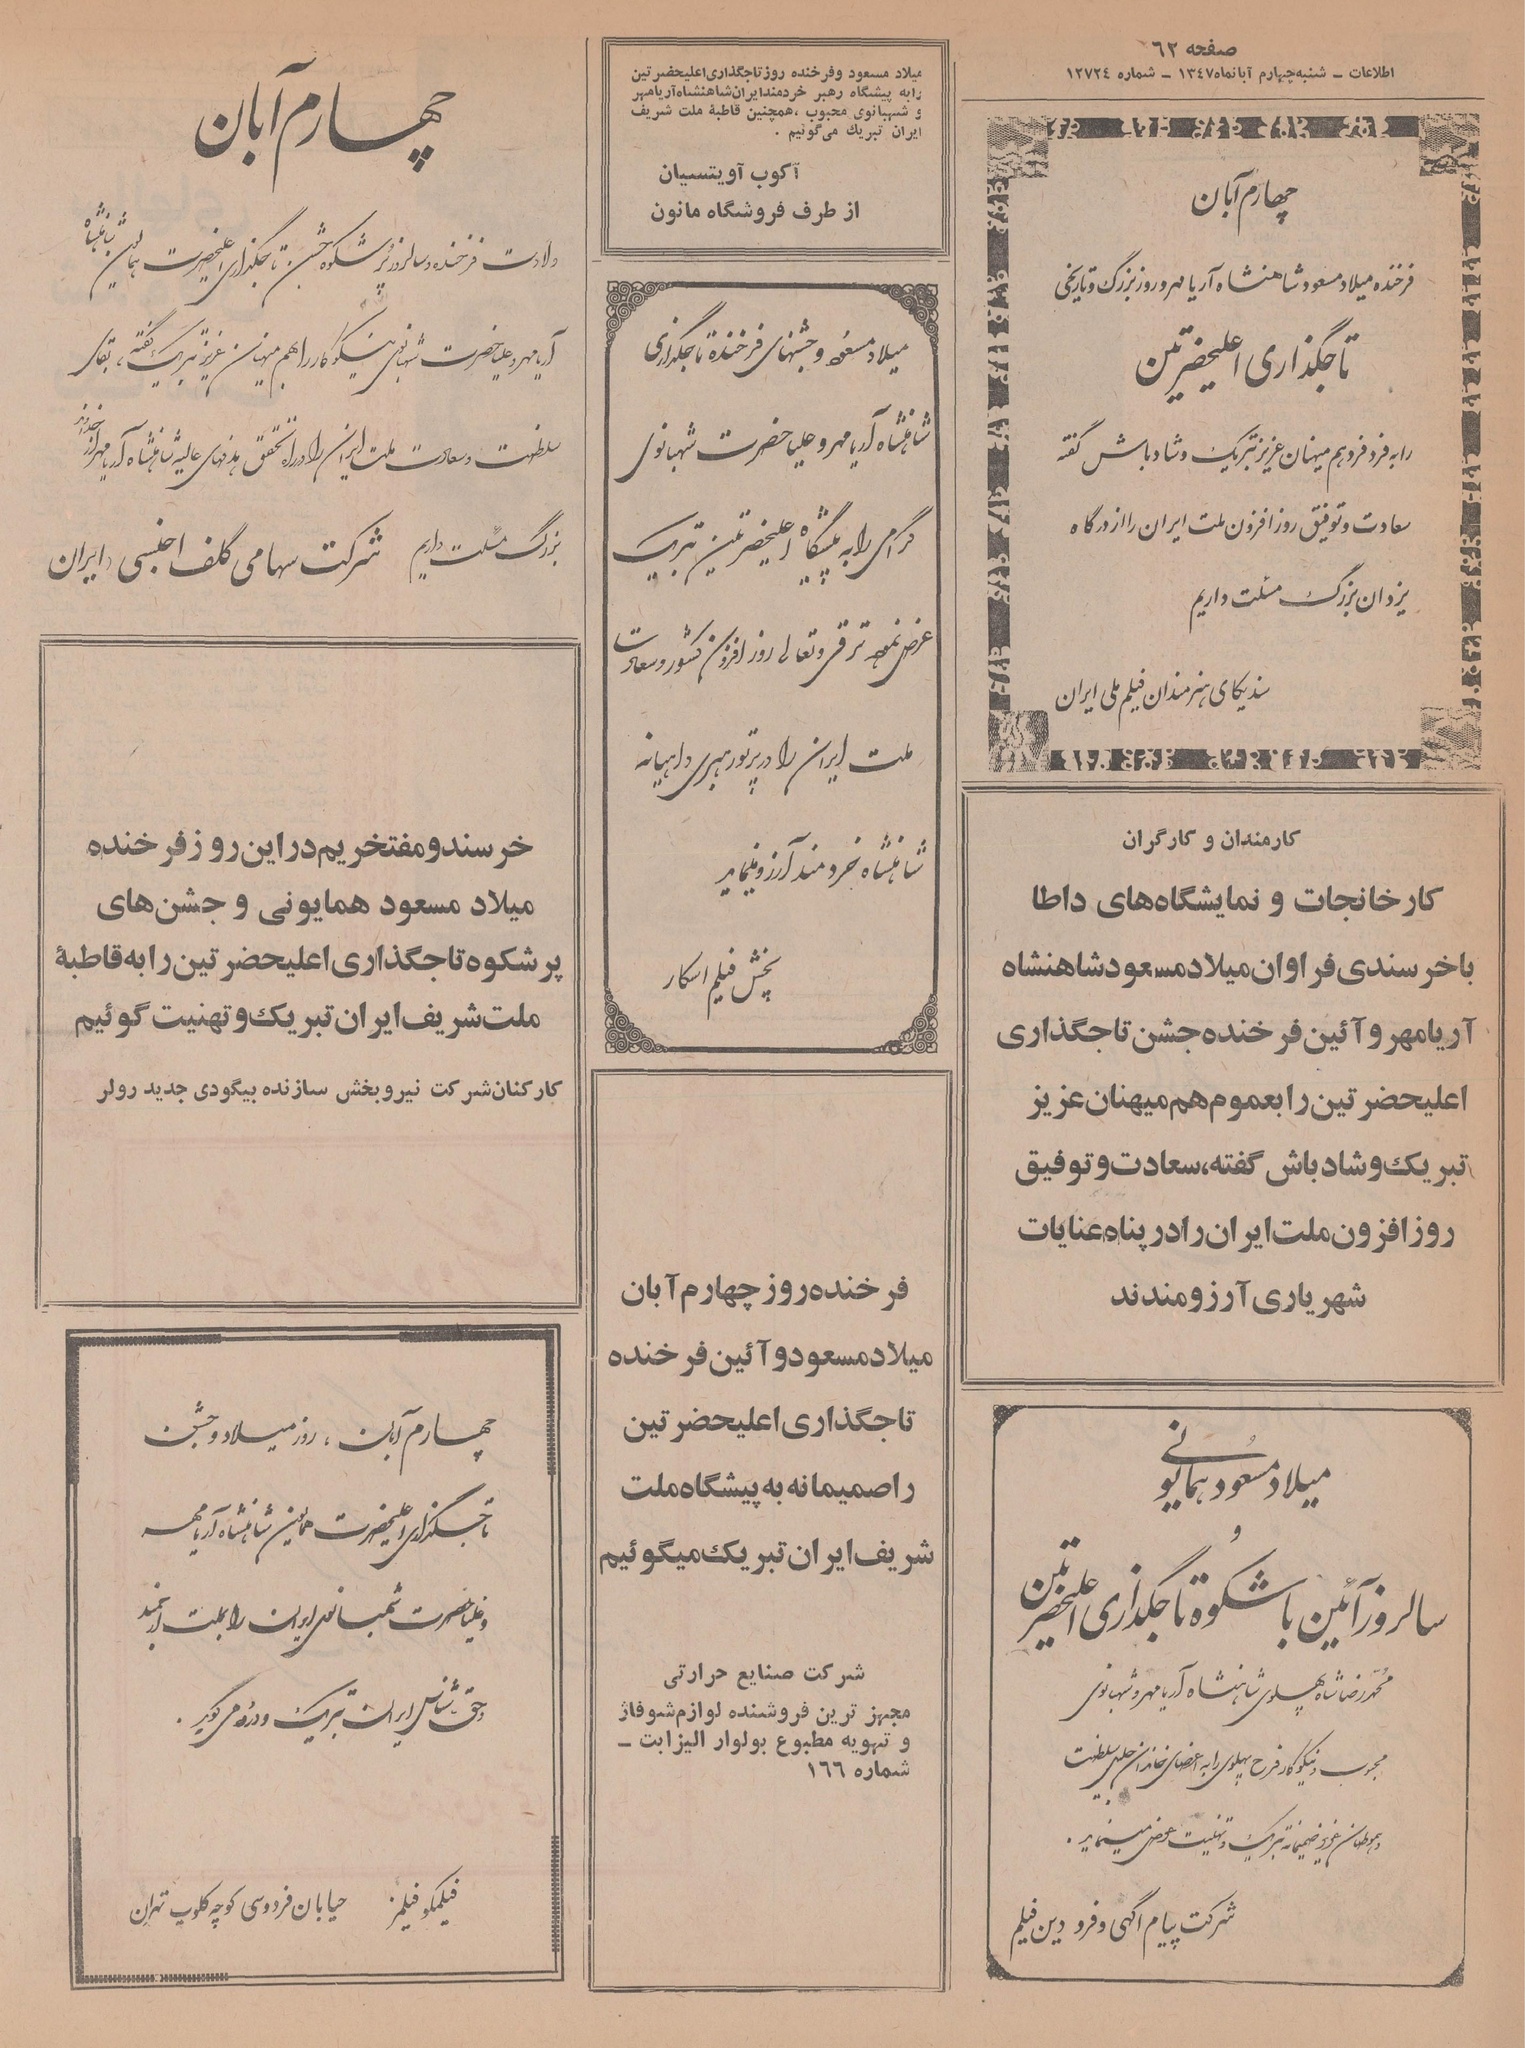 صفحه ٦٢
اطلاعات ـ شنبه چهارم آبانماه ١٣٤٧ ـ شماره ١٢٧٢٤
چهارم آبان
فرخنده میلاد مسعود شاهنشاه آریامهر و روز بزرگ و تاریخی
تاجگذاری اعلیحضرتین
را به فرد فرد هم میهنان عزیز تبریک و شادباش گفته
سعادت و توفیق روز افزون ملت ایران را از درگاه
یزدان بزرگ مسئلت داریم
سندیکای هنرمندان فیلم ملی ایران
کارمندان و کارگران
کارخانجات و نمایشگاه‌های داطا
با خرسندی فراوان میلاد مسعود شاهنشاه
آریامهر و آئین فرخنده جشن تاجگذاری
اعلیحضرتین را بعموم هم میهنان عزیز
تبریک و شادباش گفته، سعادت و توفیق
روز افزون ملت ایران را در پناه عنایات
شهریاری آرزومندند
میلاد مسعود همایونی
و
سالروز آئین با شکوه تاجگذاری اعلیحضرتین
محمدرضا شاه پهلوی شاهنشاه آریامهر و شهبانوی
محبوب و نیکوکار فرح پهلوی را به اعضای خاندان جلیل سلطنت
و هموطنان عزیز صمیمانه تبریک و تهنیت عرض مینماید .
شرکت پیام آگهی و فرودین فیلم
میلاد مسعود و فرخنده روز تاجگذاری اعلیحضرتین
را به پیشگاه رهبر خردمند ایران شاهنشاه آریامهر
و شهبانوی محبوب ، همچنین قاطبهٔ ملت شریف
ایران تبریک می‌گوئیم .
آکوب آویتسیان
از طرف فروشگاه مانون
میلاد مسعود و جشنهای فرخنده تاجگذاری
شاهنشاه آریامهر و علیاحضرت شهبانوی
گرامی را به پیشگاه اعلیحضرتین تبریک
عرض نموده ترقی و تعالی روز افزون کشور و سعادت
ملت ایران را در پرتو رهبری داهیانه
شاهنشاه خردمند آرزو مینماید
پخش فیلم اسکار
فرخنده روز چهارم آبان
میلاد مسعود و آئین فرخنده
تاجگذاری اعلیحضرتین
را صمیمانه به پیشگاه ملت
شریف ایران تبریک میگوئیم
شرکت صنایع حرارتی
مجهزترین فروشنده لوازم شوفاژ
و تهویه مطبوع بولوار الیزابت ـ
شماره ١٦٦
چهارم آبان
ولادت فرخنده و سالروز پرشکوه جشن تاجگذاری اعلیحضرت همایون شاهنشاه
آریامهر و علیاحضرت شهبانوی نیکوکار را به هم میهنان عزیز تبریک گفته ، بقای
سلطنت و سعادت ملت ایران را در راه تحقق هدفهای عالیهٔ شاهنشاه آریامهر از خداوند
بزرگ مسئلت داریم
شرکت سهامی گلف اجنسی ایران
خرسند و مفتخریم در این روز فرخنده
میلاد مسعود همایونی و جشن‌های
پرشکوه تاجگذاری اعلیحضرتین را به قاطبهٔ
ملت شریف ایران تبریک و تهنیت گوئیم
کارکنان شرکت نیروبخش سازنده بیگودی جدید رولر
چهارم آبان ، روز میلاد و جشن
تاجگذاری اعلیحضرت همایون شاهنشاه آریامهر
و علیاحضرت شهبانوی ایران را بملت ارجمند
و حق شناس ایران تبریک و درود می گوید .
فیلمکو فیلمز
خیابان فردوسی کوچه کلوب تهران